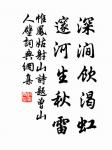 深澗飲渴虹
邃河生秋雷
惟鳳姑射山詩題曾山
人壁詞典網集